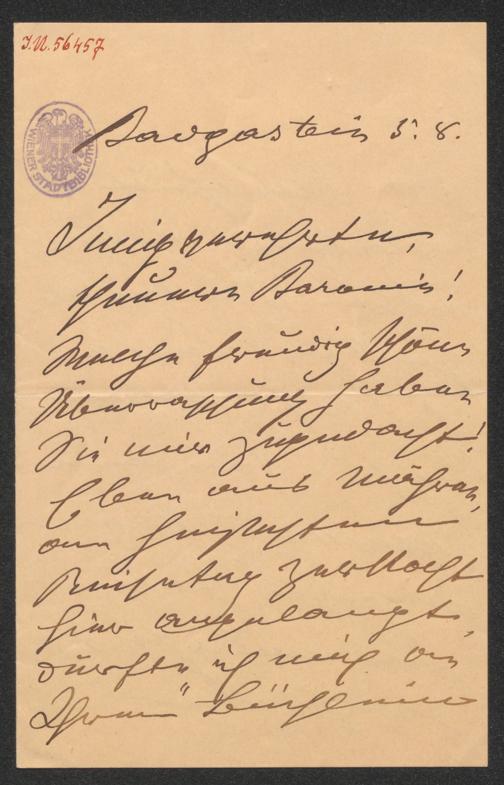 I.N. 56457
WIENER STADTBIBLIOTHEK
Badgastein 5. 8.
Innigverehrte,
theuerste Baronin!
Welche freudig schöne
Überraschung haben
Sie mir zugedacht!
Eben aus Mähren,
am heißesten
Reisetag
hier angelangt,
durfte ich mich an
Ihrem "Büchlein